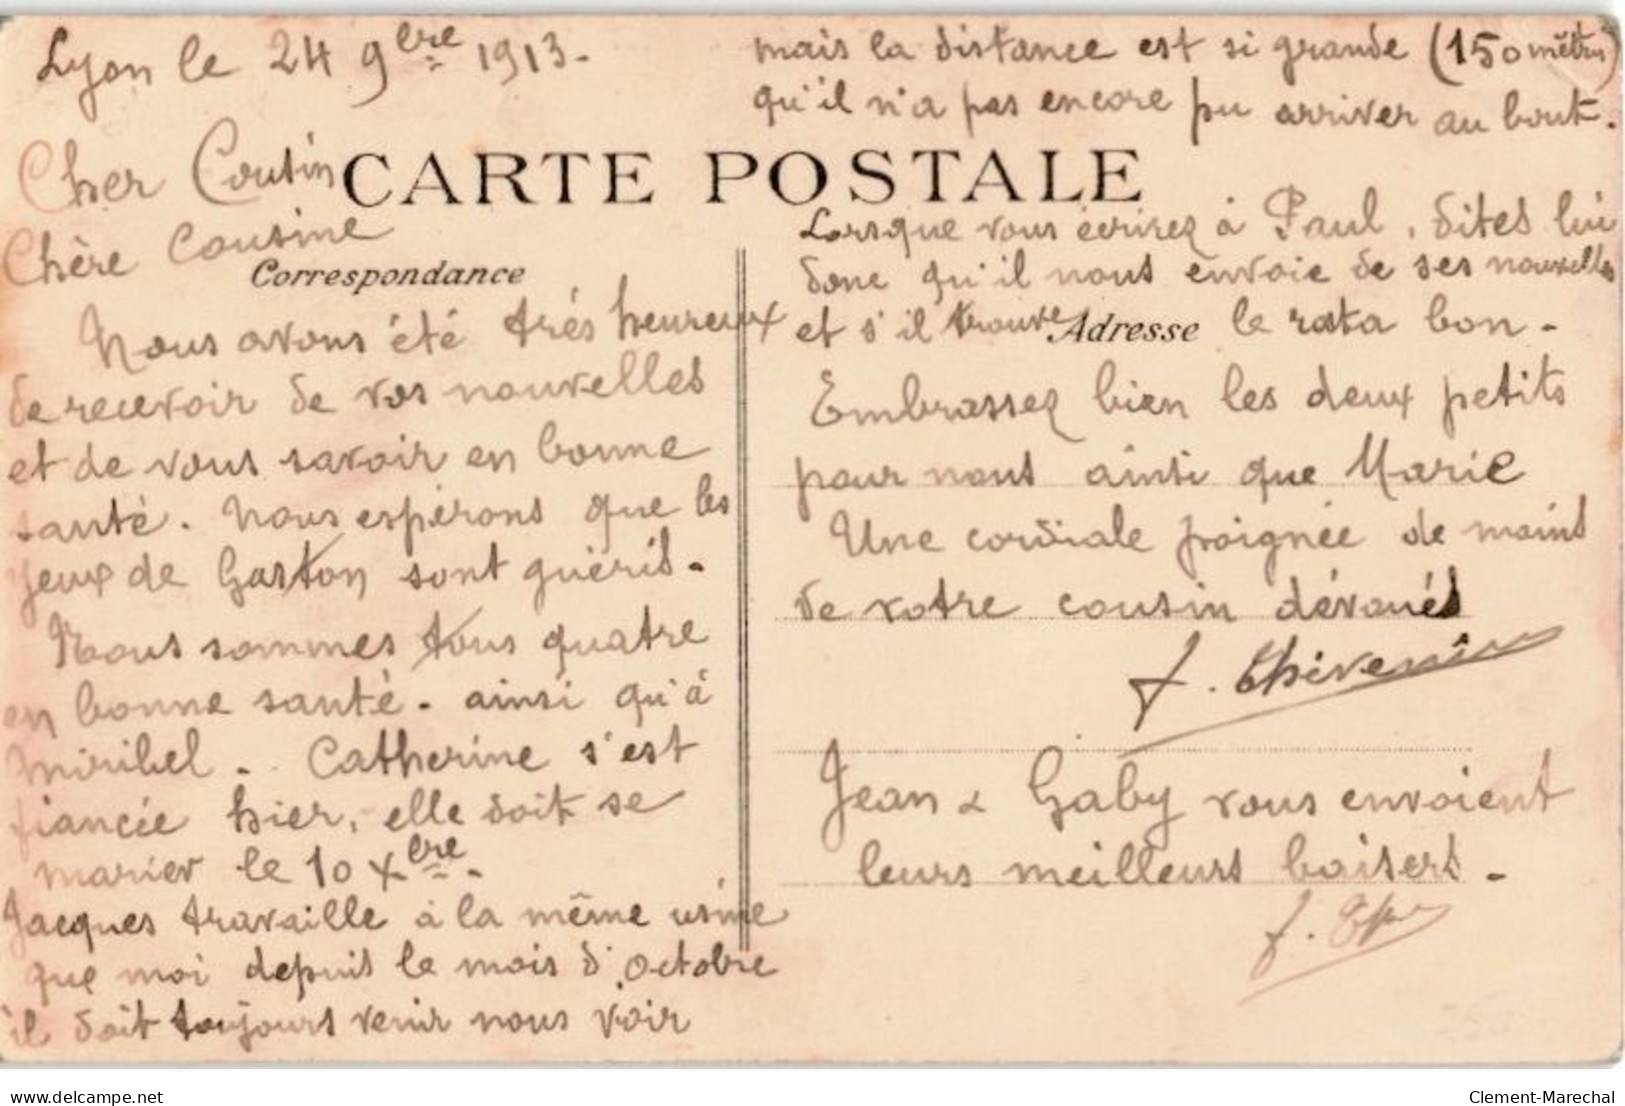 Lyon le 24 9bre 1913.
Cher Cousin
Chère Cousine
CARTE POSTALE
Correspondance
Nous avons été très heureux
de recevoir de vos nouvelles
et de vous savoir en bonne
santé. Nous espérons que les
yeux de Gaston sont guéris.
Nous sommes tous quatre
en bonne santé. ainsi qu'à
Miribel. Catherine s'est
fiancée hier, elle doit se
marier le 10 Xbre.
Jacques travaille à la même usine
que moi depuis le mois d'octobre
il doit toujours venir nous voir
mais la distance est si grande (150 mètres)
qu'il n'a pas encore pu arriver au bout.
Lorsque vous écrirez à Paul, dites lui
donc qu'il nous envoie de ses nouvelles
et s'il trouve le rata bon.
Adresse
Embrassez bien les deux petits
pour nous ainsi que Marie
Une cordiale poignée de mains
de votre cousin dévoués
J. Thévenin
Jean & Gaby vous envoient
leurs meilleurs baisers.
delcampe.net
Clement-Marechal